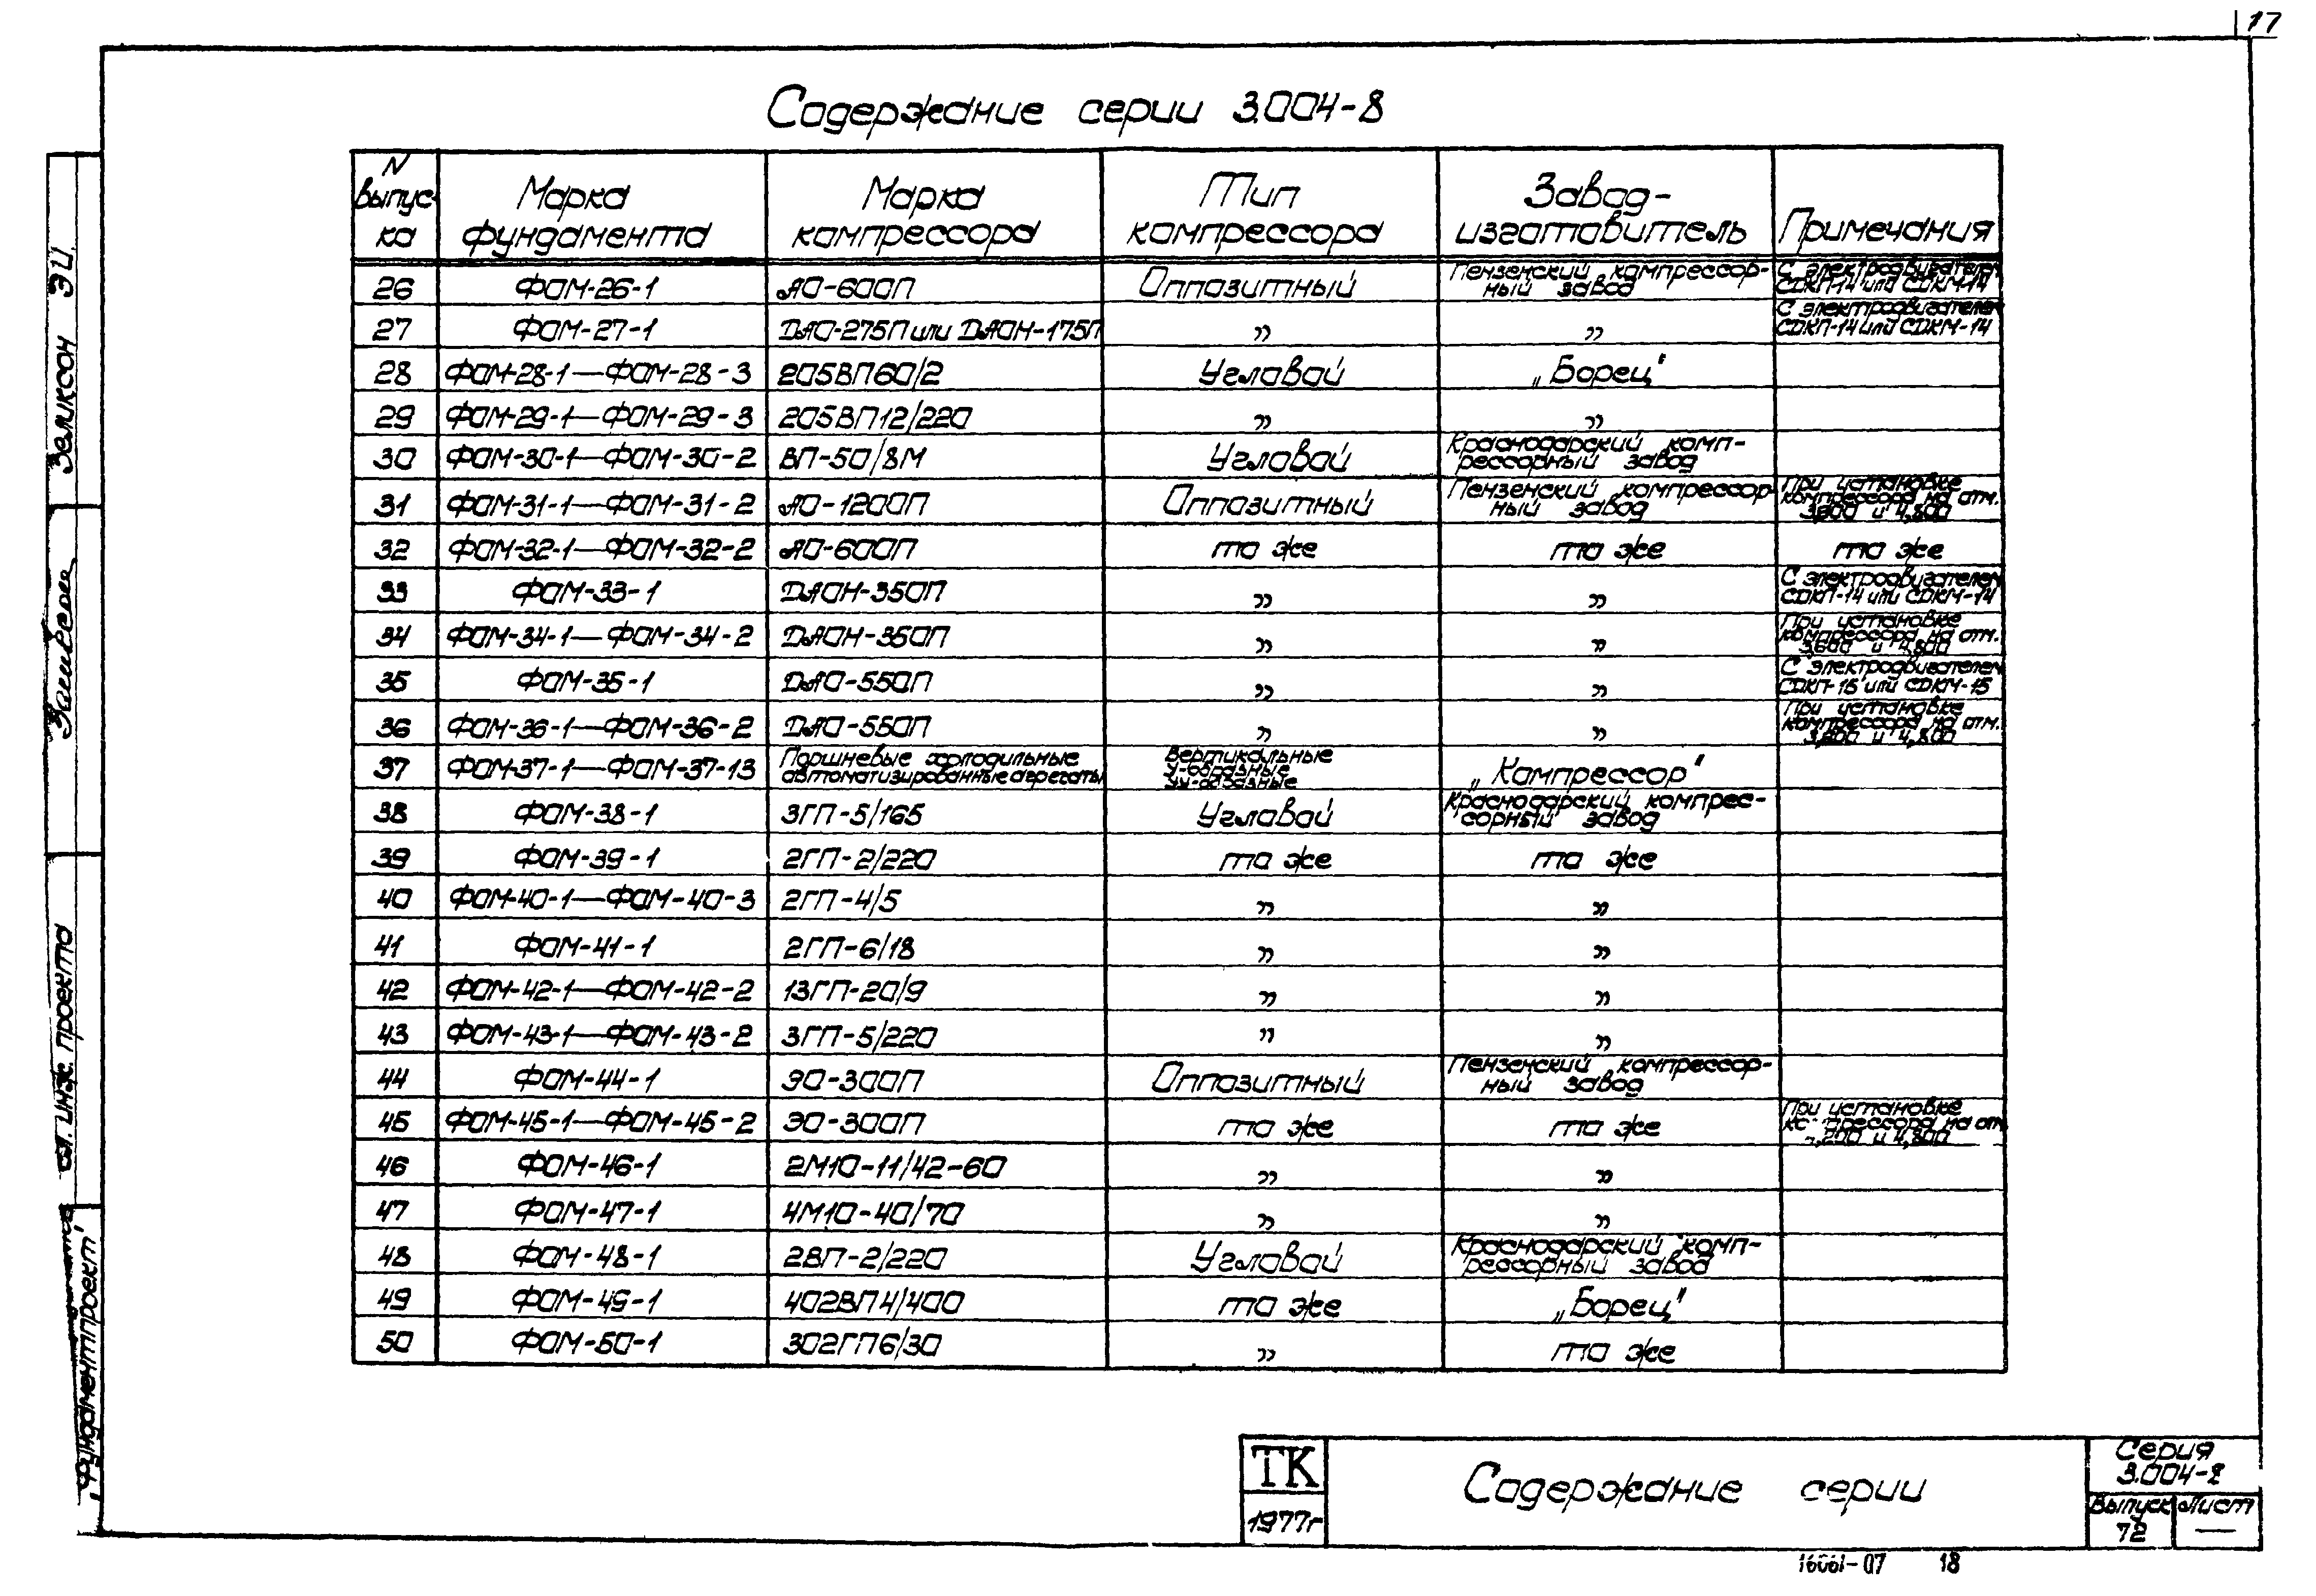 17
Содержание серии 3.004-8
N выпус-ка | Марка фундамента | Марка компрессора | Тип компрессора | Завод-изготовитель | Примечания
26 | ФОМ-26-1 | АО-600П | Оппозитный | Пензенский компрессор-ный завод | С электродвигателем СДКП-14 или СДКМ-14
27 | ФОМ-27-1 | ДАО-275П или ДАОН-175П | „ | „ | С электродвигателем СДКП-14 или СДКМ-14
28 | ФОМ-28-1—ФОМ-28-3 | 205ВП60/2 | Угловой | „Борец"
29 | ФОМ-29-1—ФОМ-29-3 | 205ВП12/220 | „ | „
30 | ФОМ-30-1—ФОМ-30-2 | ВП-50/8М | Угловой | Краснодарский комп-рессорный завод
31 | ФОМ-31-1—ФОМ-31-2 | АО-1200П | Оппозитный | Пензенский компрессор-ный завод | При установке компрессора на отм. 3,600 и 4,800
32 | ФОМ-32-1—ФОМ-32-2 | АО-600П | то же | то же | то же
33 | ФОМ-33-1 | ДАОН-350П | „ | „ | С электродвигателем СДКП-14 или СДКМ-14
34 | ФОМ-34-1—ФОМ-34-2 | ДАОН-350П | „ | „ | При установке компрессора на отм. 3,600 и 4,800
35 | ФОМ-35-1 | ДАО-550П | „ | „ | С электродвигателем СДКП-15 или СДКМ-15
36 | ФОМ-36-1—ФОМ-36-2 | ДАО-550П | „ | „ | При установке компрессора на отм. и 4,800
37 | ФОМ-37-1—ФОМ-37-13 | Поршневые холодильные автоматизированные агрегаты | Вертикальные У-образные УУ-образные | „Компрессор"
38 | ФОМ-38-1 | 3ГП-5/165 | Угловой | Краснодарский компрес-сорный завод
39 | ФОМ-39-1 | 2ГП-2/220 | то же | то же
40 | ФОМ-40-1—ФОМ-40-3 | 2ГП-4/5 | „ | „
41 | ФОМ-41-1 | 2ГП-6/18 | „ | „
42 | ФОМ-42-1—ФОМ-42-2 | 13ГП-20/9 | „ | „
43 | ФОМ-43-1—ФОМ-43-2 | 3ГП-5/220 | „ | „
44 | ФОМ-44-1 | ЭО-300П | Оппозитный | Пензенский компрессор-ный завод
45 | ФОМ-45-1—ФОМ-45-2 | ЭО-300П | то же | то же | При установке компрессора на отм. и 4,800
46 | ФОМ-46-1 | 2М10-11/42-60 | „ | „
47 | ФОМ-47-1 | 4М10-40/70 | „ | „
48 | ФОМ-48-1 | 2ВП-2/220 | Угловой | Краснодарский комп-рессорный завод
49 | ФОМ-49-1 | 402ВП4/400 | то же | „Борец"
50 | ФОМ-50-1 | 302ГП6/30 | „ | то же
Заликсон ЭИ.
Гл. инж. проекта
„Фундаментпроект"
ТК
1977г
Содержание серии
Серия
3.004-8
Выпуск Лист
72 —
16061-07 18